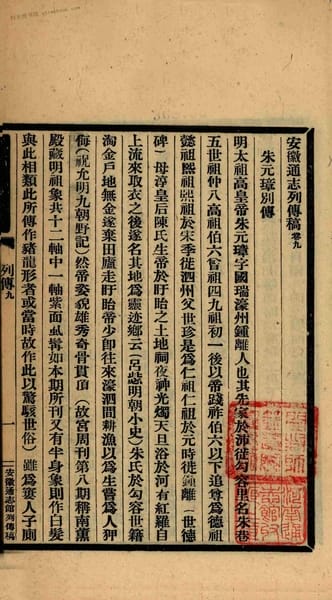 安徽通志列傳稿 卷九
朱元璋別傳
明太祖高皇帝朱元璋字國瑞濠州鍾離人也其先家於沛徙句容里名朱巷
五世祖仲八高祖伯六曾祖四九祖初一後以帝踐祚伯六以下追尊爲德祖
懿祖熙祖熙祖於宋季徙泗州父世珍是爲仁祖仁祖於元時徙鍾離（世德
碑）母淳皇后陳氏生帝於盱眙之土地祠夜神光燭天旦浴於河有紅羅自
上流來取衣之後遂名其地爲靈迹鄉云（呂毖明朝小史）朱氏於句容世籍
淘金戶地無金遂棄田廬走盱眙帝少即往來濠泗間耕漁以爲生嘗爲人狎
侮（祝允明九朝野記）然帝姿貌雄秀奇骨貫頂（故宮周刊第八期稱南薰
殿藏明祖象共十二軸中一軸紫而虬髯如本期所刊又有半身象則作白髮
與此相類此所傳作豬龍形者或當時故作此以驚駭世俗）雖爲窶人子廁
列傳九
一
安徽通志館列傳稿